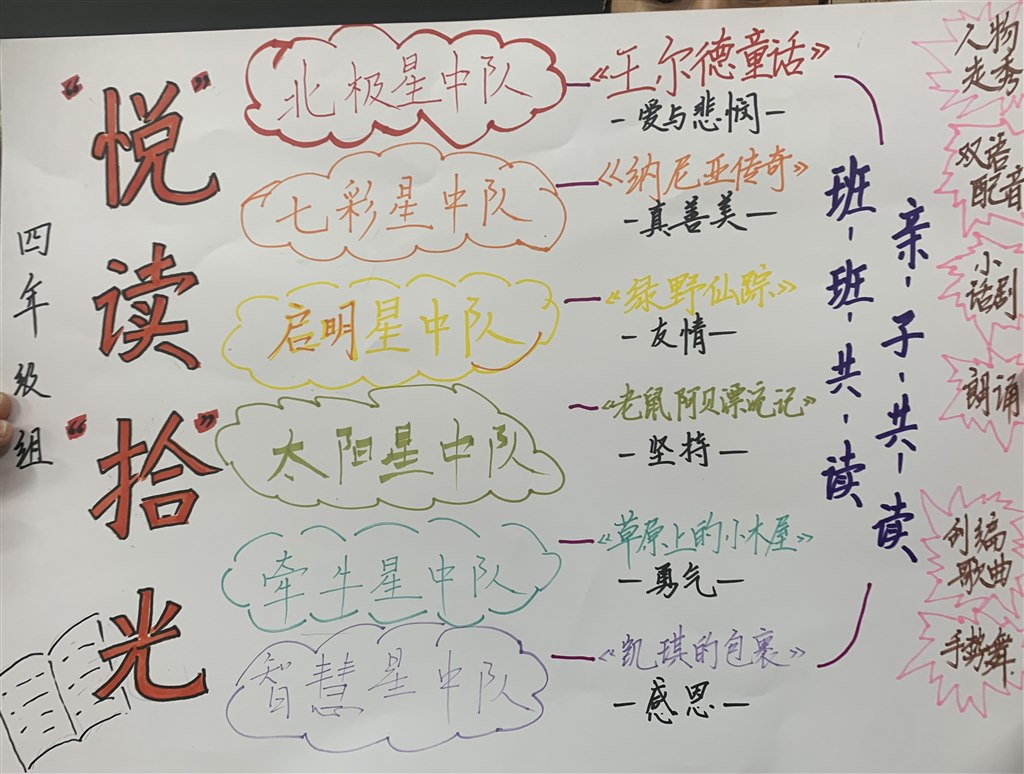 四年级组
“悦读”
“拾”光
北极星中队
《王尔德童话》
—爱与悲悯—
七彩星中队
《纳尼亚传奇》
—真善美—
启明星中队
《绿野仙踪》
—友情—
太阳星中队
《老鼠阿贝漂流记》
—坚持—
牵牛星中队
《草原上的小木屋》
—勇气—
智慧星中队
《凯琪的包裹》
—感恩—
班-班-共-读
亲-子-共-读
人物
走秀
双语
配音
小
话剧
朗诵
创编
歌曲
手势舞